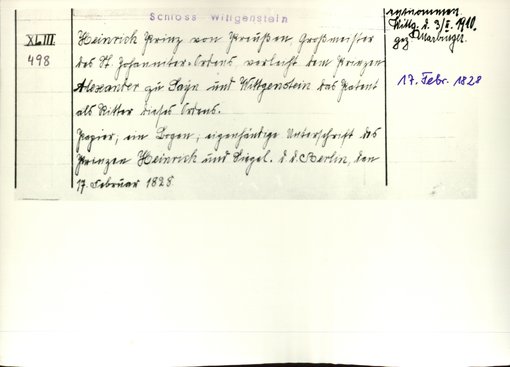 Schloss Wittgenstein
XLIII
498
Heinrich Prinz von Preußen, Großmeister
des St. Johanniter-Ordens verleiht dem Prinzen
Alexander zu Sayn und Wittgenstein das Patent
als Ritter dieses Ordens.
Papier, ein Bogen, eigenhändige Unterschrift des
Prinzen Heinrich und Siegel. d. d. Berlin, den
17. Februar 1828
entnommen
Wittg. d. 3/II. 1910.
gez
17. Febr. 1828